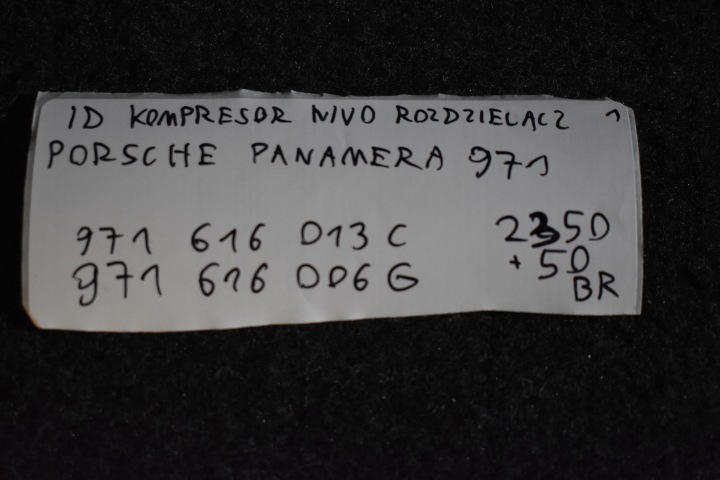 ID KOMPRESOR NIVO ROZDZIELACZ 1
PORSCHE PANAMERA 971
971 616 013 C 2350
971 616 006 G + 50
BR